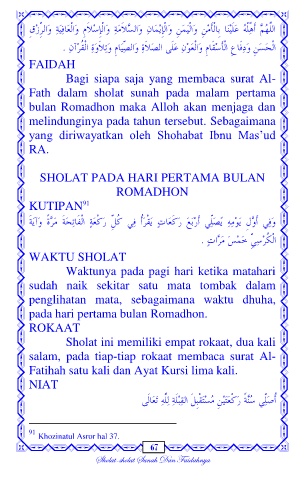 اللَّهُمَّ أَهِلَّهُ عَلَيْنَا بِالْأَمْنِ وَالْيَمَنِ وَالْإِيْمَانِ وَالسَّلَامَةِ وَالْإِسْلَامِ وَالْعَافِيَةِ وَالرِّزْقِ
الْحَسَنِ وَدِفَاعِ الْأَسْقَامِ وَالْعَوْنِ عَلَى الصَّلَاةِ وَالصِّيَامِ وَتِلَاوَةِ الْقُرْآنِ .
FAIDAH
Bagi siapa saja yang membaca surat Al-
Fath dalam sholat sunah pada malam pertama
bulan Romadhon maka Alloh akan menjaga dan
melindunginya pada tahun tersebut. Sebagaimana
yang diriwayatkan oleh Shohabat Ibnu Mas'ud
RA.
SHOLAT PADA HARI PERTAMA BULAN
ROMADHON
KUTIPAN91
وَفِي أَوَّلِ يَوْمِهِ يُصَلِّي أَرْبَعَ رَكَعَاتٍ يَقْرَأُ فِي كُلِّ رَكْعَةٍ الْفَاتِحَةَ مَرَّةً وَآيَةَ
الْكُرْسِيِّ خَمْسَ مَرَّاتٍ .
WAKTU SHOLAT
Waktunya pada pagi hari ketika matahari
sudah naik sekitar satu mata tombak dalam
penglihatan mata, sebagaimana waktu dhuha,
pada hari pertama bulan Romadhon.
ROKAAT
Sholat ini memiliki empat rokaat, dua kali
salam, pada tiap-tiap rokaat membaca surat Al-
Fatihah satu kali dan Ayat Kursi lima kali.
NIAT
أُصَلِّي سُنَّةً رَكْعَتَيْنِ مُسْتَقْبِلَ الْقِبْلَةِ لِلَّهِ تَعَالَى
91 Khozinatul Asror hal 37.
67
Sholat-sholat Sunah Dan Faidahnya